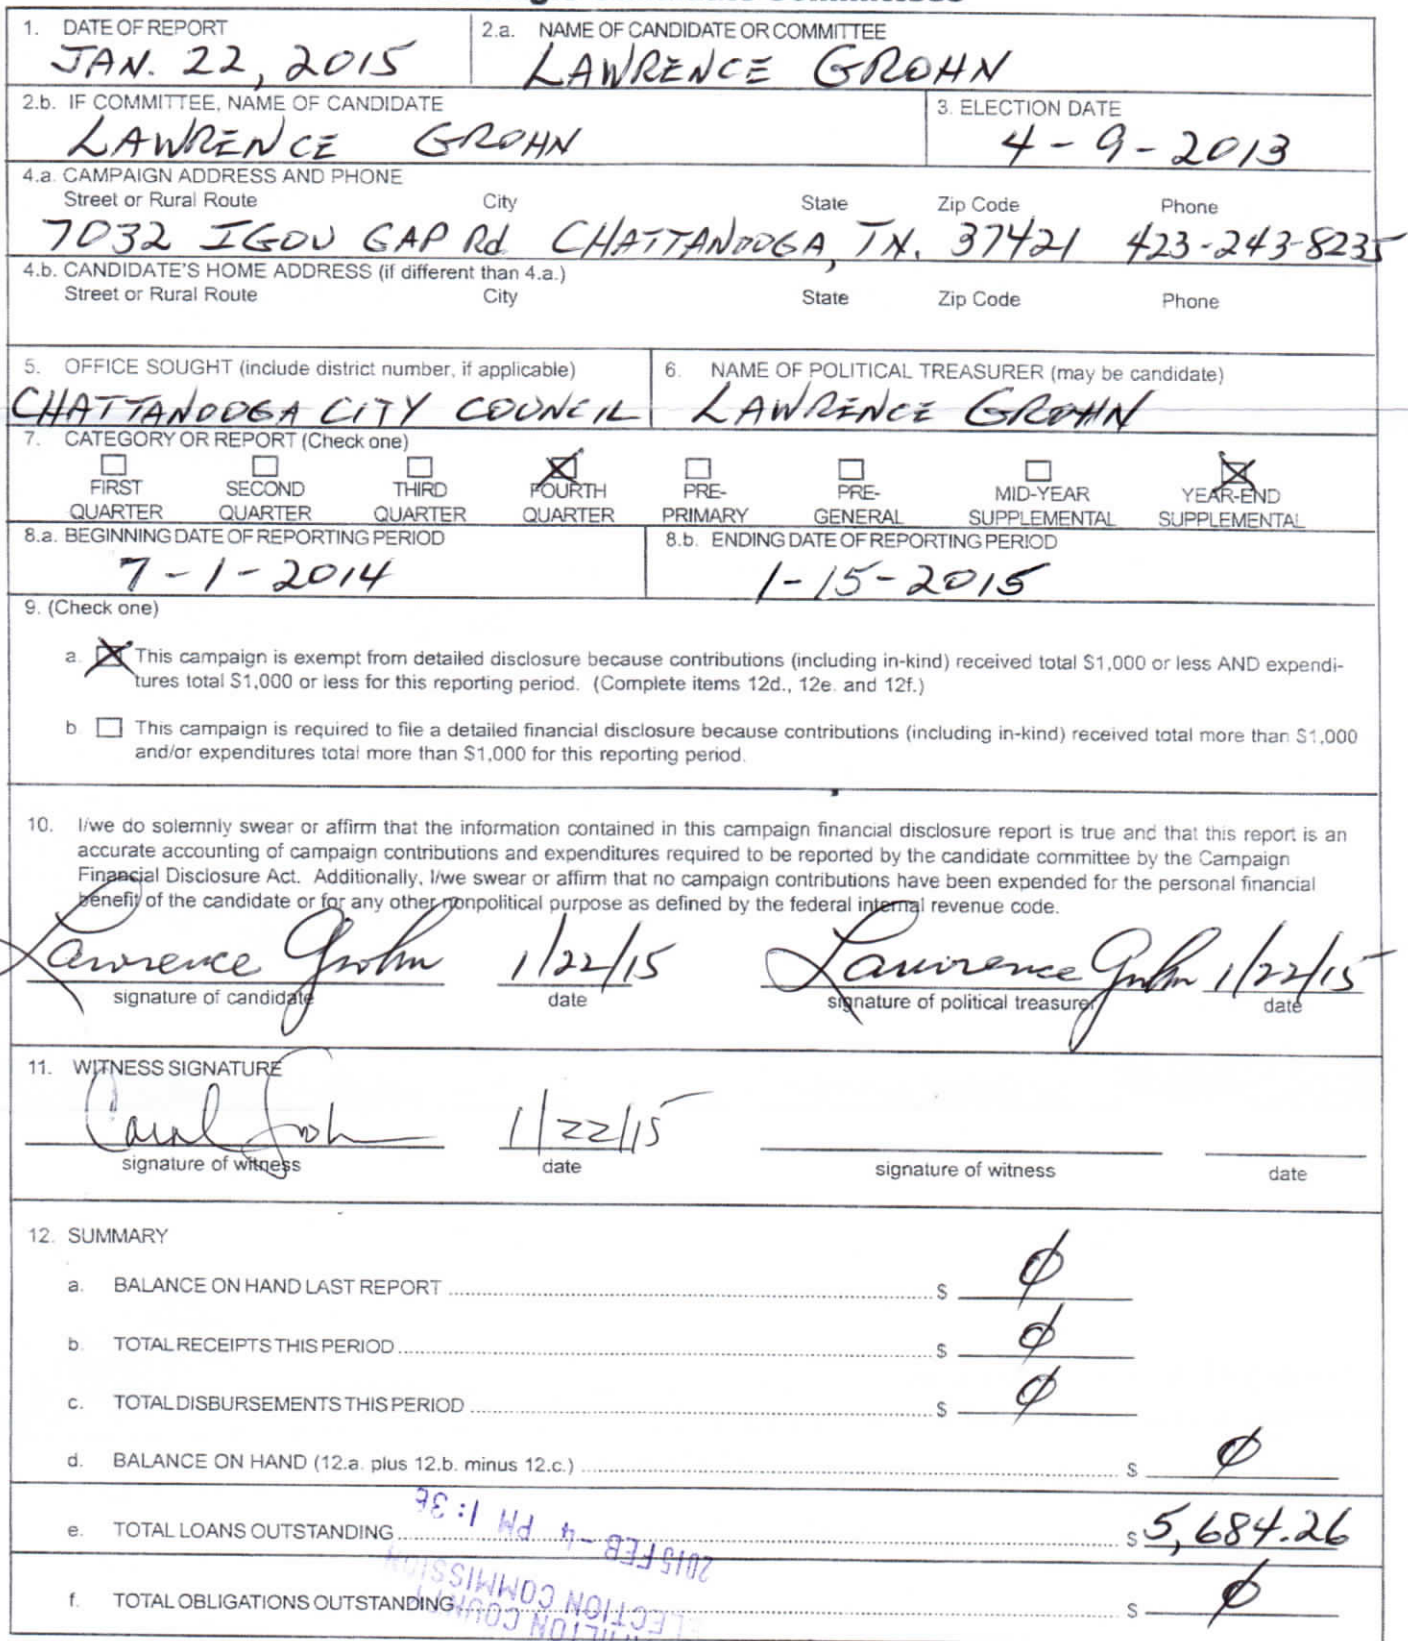 1. DATE OF REPORT
JAN. 22, 2015
2.a. NAME OF CANDIDATE OR COMMITTEE
LAWRENCE GROHN
2.b. IF COMMITTEE, NAME OF CANDIDATE
LAWRENCE GROHN
3. ELECTION DATE
4-9-2013
4.a. CAMPAIGN ADDRESS AND PHONE
Street or Rural Route City State Zip Code Phone
7032 IGOU GAP Rd CHATTANOOGA, TN. 37421 423-243-8235
4.b. CANDIDATE'S HOME ADDRESS (if different than 4.a.)
Street or Rural Route City State Zip Code Phone
5. OFFICE SOUGHT (include district number, if applicable)
CHATTANOOGA CITY COUNCIL
6. NAME OF POLITICAL TREASURER (may be candidate)
LAWRENCE GROHN
7. CATEGORY OR REPORT (Check one)
FIRST QUARTER
SECOND QUARTER
THIRD QUARTER
FOURTH QUARTER
PRE-PRIMARY
PRE-GENERAL
MID-YEAR SUPPLEMENTAL
YEAR-END SUPPLEMENTAL
8.a. BEGINNING DATE OF REPORTING PERIOD
7-1-2014
8.b. ENDING DATE OF REPORTING PERIOD
1-15-2015
9. (Check one)
a. This campaign is exempt from detailed disclosure because contributions (including in-kind) received total $1,000 or less AND expendi-
tures total $1,000 or less for this reporting period. (Complete items 12d., 12e. and 12f.)
b This campaign is required to file a detailed financial disclosure because contributions (including in-kind) received total more than $1,000
and/or expenditures total more than $1,000 for this reporting period.
10. I/we do solemnly swear or affirm that the information contained in this campaign financial disclosure report is true and that this report is an
accurate accounting of campaign contributions and expenditures required to be reported by the candidate committee by the Campaign
Financial Disclosure Act. Additionally, I/we swear or affirm that no campaign contributions have been expended for the personal financial
benefit of the candidate or for any other nonpolitical purpose as defined by the federal internal revenue code.
Lawrence Grohn 1/22/15 Lawrence Grohn 1/22/15
signature of candidate date signature of political treasurer date
11. WITNESS SIGNATURE
Carol Grohn 1/22/15
signature of witness date signature of witness date
12. SUMMARY
a. BALANCE ON HAND LAST REPORT $ 0
b. TOTAL RECEIPTS THIS PERIOD $ 0
c. TOTAL DISBURSEMENTS THIS PERIOD $ 0
d. BALANCE ON HAND (12.a. plus 12.b. minus 12.c.) $ 0
e. TOTAL LOANS OUTSTANDING $ 5,684.26
f. TOTAL OBLIGATIONS OUTSTANDING $ 0
2015 FEB -4 PM 1:36
ELECTION COMMISSION